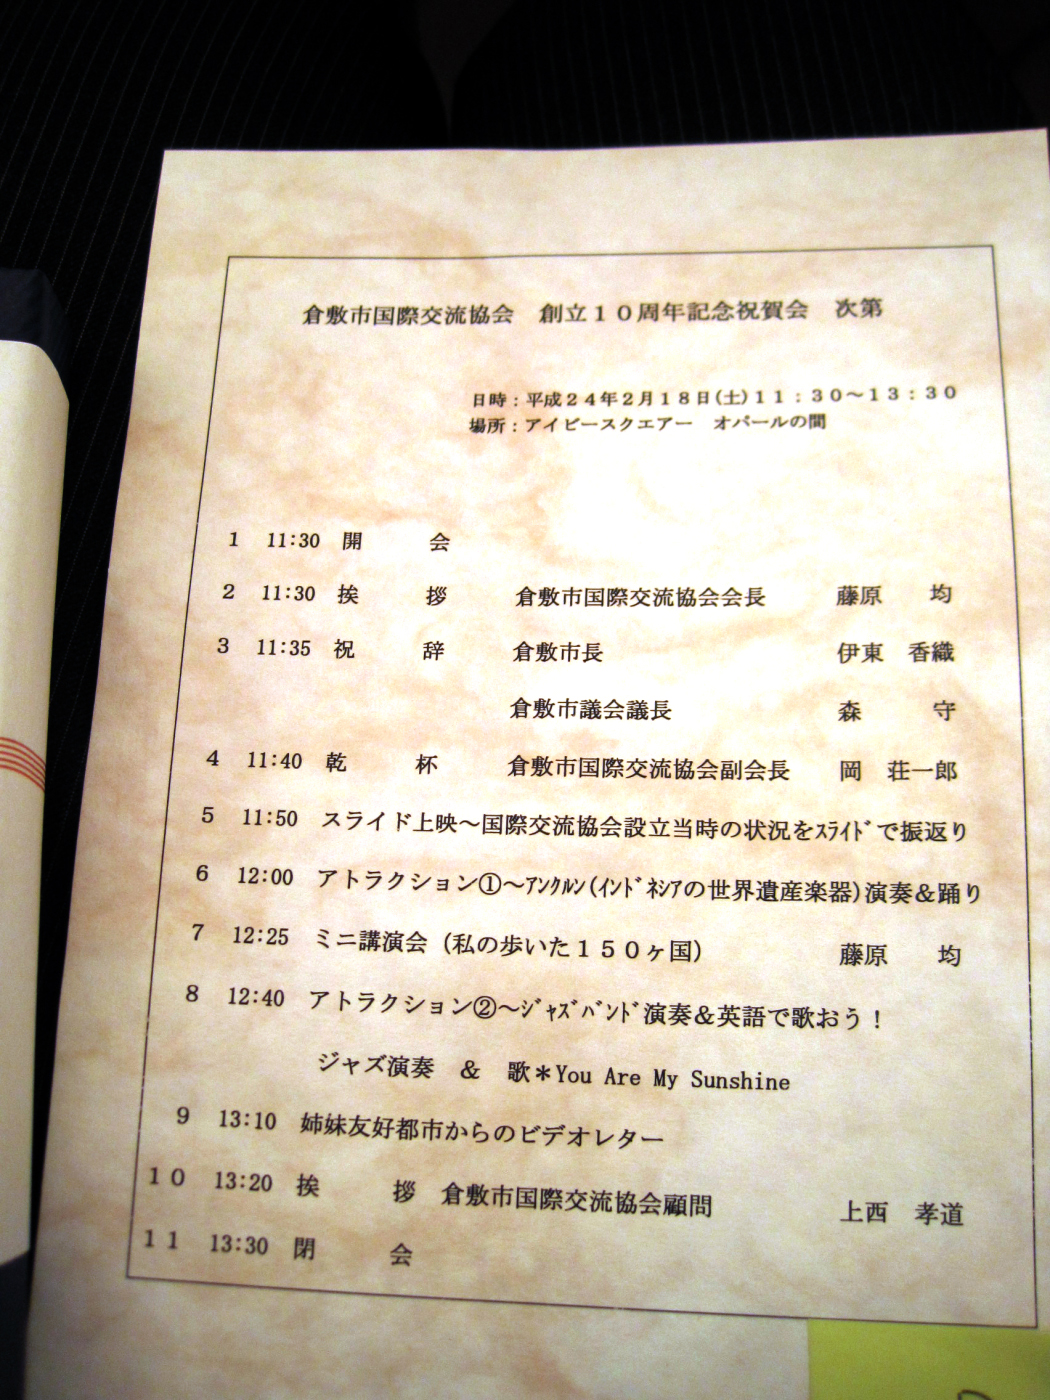 倉敷市国際交流協会　創立１０周年記念祝賀会　次第
日時：平成２４年２月１８日(土)１１：３０～１３：３０
場所：アイビースクエアー　オパールの間
1 11:30 開　会
2 11:30 挨　拶　倉敷市国際交流協会会長　藤原　均
3 11:35 祝　辞　倉敷市長　伊東　香織
倉敷市議会議長　森　守
4 11:40 乾　杯　倉敷市国際交流協会副会長　岡　荘一郎
5 11:50 スライド上映～国際交流協会設立当時の状況をｽﾗｲﾄﾞで振返り
6 12:00 アトラクション①～ｱﾝｸﾙﾝ(ｲﾝﾄﾞﾈｼｱの世界遺産楽器)演奏＆踊り
7 12:25 ミニ講演会（私の歩いた１５０ヶ国）　藤原　均
8 12:40 アトラクション②～ｼﾞｬｽﾞﾊﾞﾝﾄﾞ演奏＆英語で歌おう！
ジャズ演奏　＆　歌＊You Are My Sunshine
9 13:10 姉妹友好都市からのビデオレター
１０ 13:20 挨　拶　倉敷市国際交流協会顧問　上西　孝道
１１ 13:30 閉　会